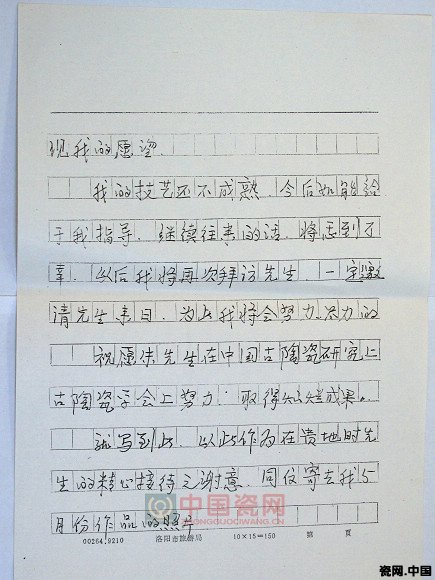 现我的愿望.
我的技艺还不成熟.今后如能给
于我指导.继续往来的话.将感到万
幸.以后我将再次拜访先生.一定邀
请先生来日.为此我将会努力.尽力的
祝愿 先生在中国古陶瓷研究上
古陶瓷学会上努力.取得 成果。
就写到此.以此作为在贵地时先
生的精心接待之谢意.同仅寄去我5
月份作品的照片
中国瓷网
ZHONGGUOCIWANG.CN
00264.9210 洛阳市旅游局 10×15=150 第 页
瓷网.中国